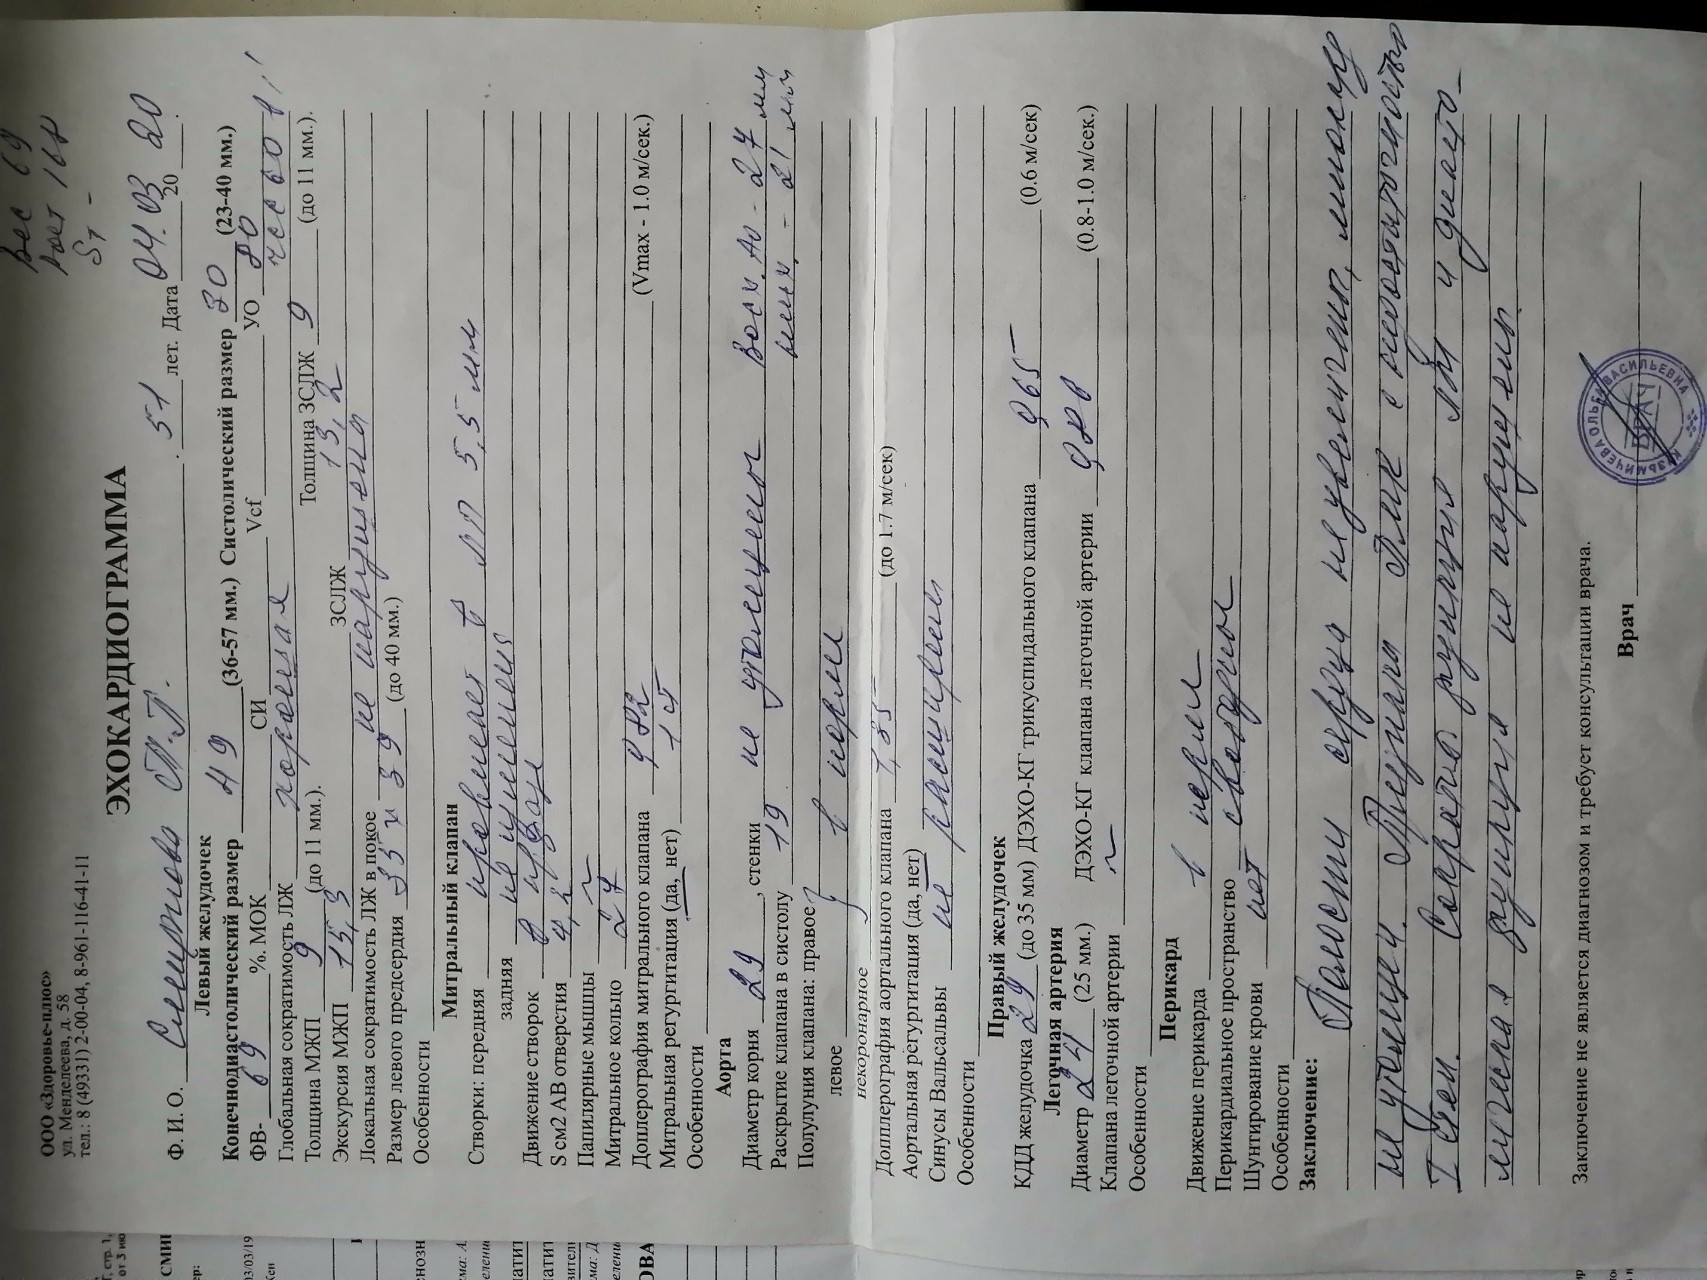 Вес 69
Рост 168
ST -
ООО «Здоровье-плюс»
ул. Менделеева, д. 58
тел.: 8 (49331) 2-00-04, 8-961-116-41-11
ЭХОКАРДИОГРАММА
Ф. И. О. Смирнова Т.Г. 51 лет. Дата 04.03 2020
Левый желудочек
Конечнодиастолический размер 49 (36-57 мм.) Систолический размер 30 (23-40 мм.)
ФВ- 69 %. МОК СИ Vcf УО 80
чсс 60 в 1'
Глобальная сократимость ЛЖ хорошая
Толщина МЖП 9 (до 11 мм.). Толщина ЗСЛЖ 9 (до 11 мм.).
Экскурсия МЖП 15,3 ЗСЛЖ 13,2
Локальная сократимость ЛЖ в покое не нарушена
Размер левого предсердия 35 х 39 (до 40 мм.)
Особенности
Митральный клапан
Створки: передняя провисает в ЛП 5,5 мм
задняя не изменена
Движение створок
S см2 АВ отверстия
Папилярные мышцы
Митральное кольцо 27
Доплерография митрального клапана 0,82 (Vmax - 1.0 м/сек.)
Митральная регургитация (да, нет) 1 ст
Особенности
Аорта
Диаметр корня 29, стенки не утолщены Восх. Ао - 27 мм
Раскрытие клапана в систолу 19 - 21 мм
Полулуния клапана: правое
левое в норме
некоронарное
Допплерография аортального клапана 1,35 (до 1.7 м/сек)
Аортальная регургитация (да, нет)
Синусы Вальсальвы не расширены
Особенности
Правый желудочек
КДД желудочка 29 (до 35 мм) ДЭХО-КГ трикуспидального клапана 0,65 (0.6 м/сек)
Легочная артерия
Диаметр 24 (25 мм.) ДЭХО-КГ клапана легочной артерии 0,88 (0.8-1.0 м/сек.)
Клапана легочной артерии
Особенности
Перикард
Движение перикарда в норме
Перикардиальное пространство свободно
Шунтирование крови нет
Особенности
Заключение: Полости сердца не увеличены, миокард
не утолщен. Пролапс ПМК с недостаточностью
I степ. Сократит. функция ЛЖ и диасто-
лическая функция не нарушены.
Заключение не является диагнозом и требует консультации врача.
Врач
КАЗЬМИЧЕВА ОЛЬГА ВАСИЛЬЕВНА
ВРАЧ